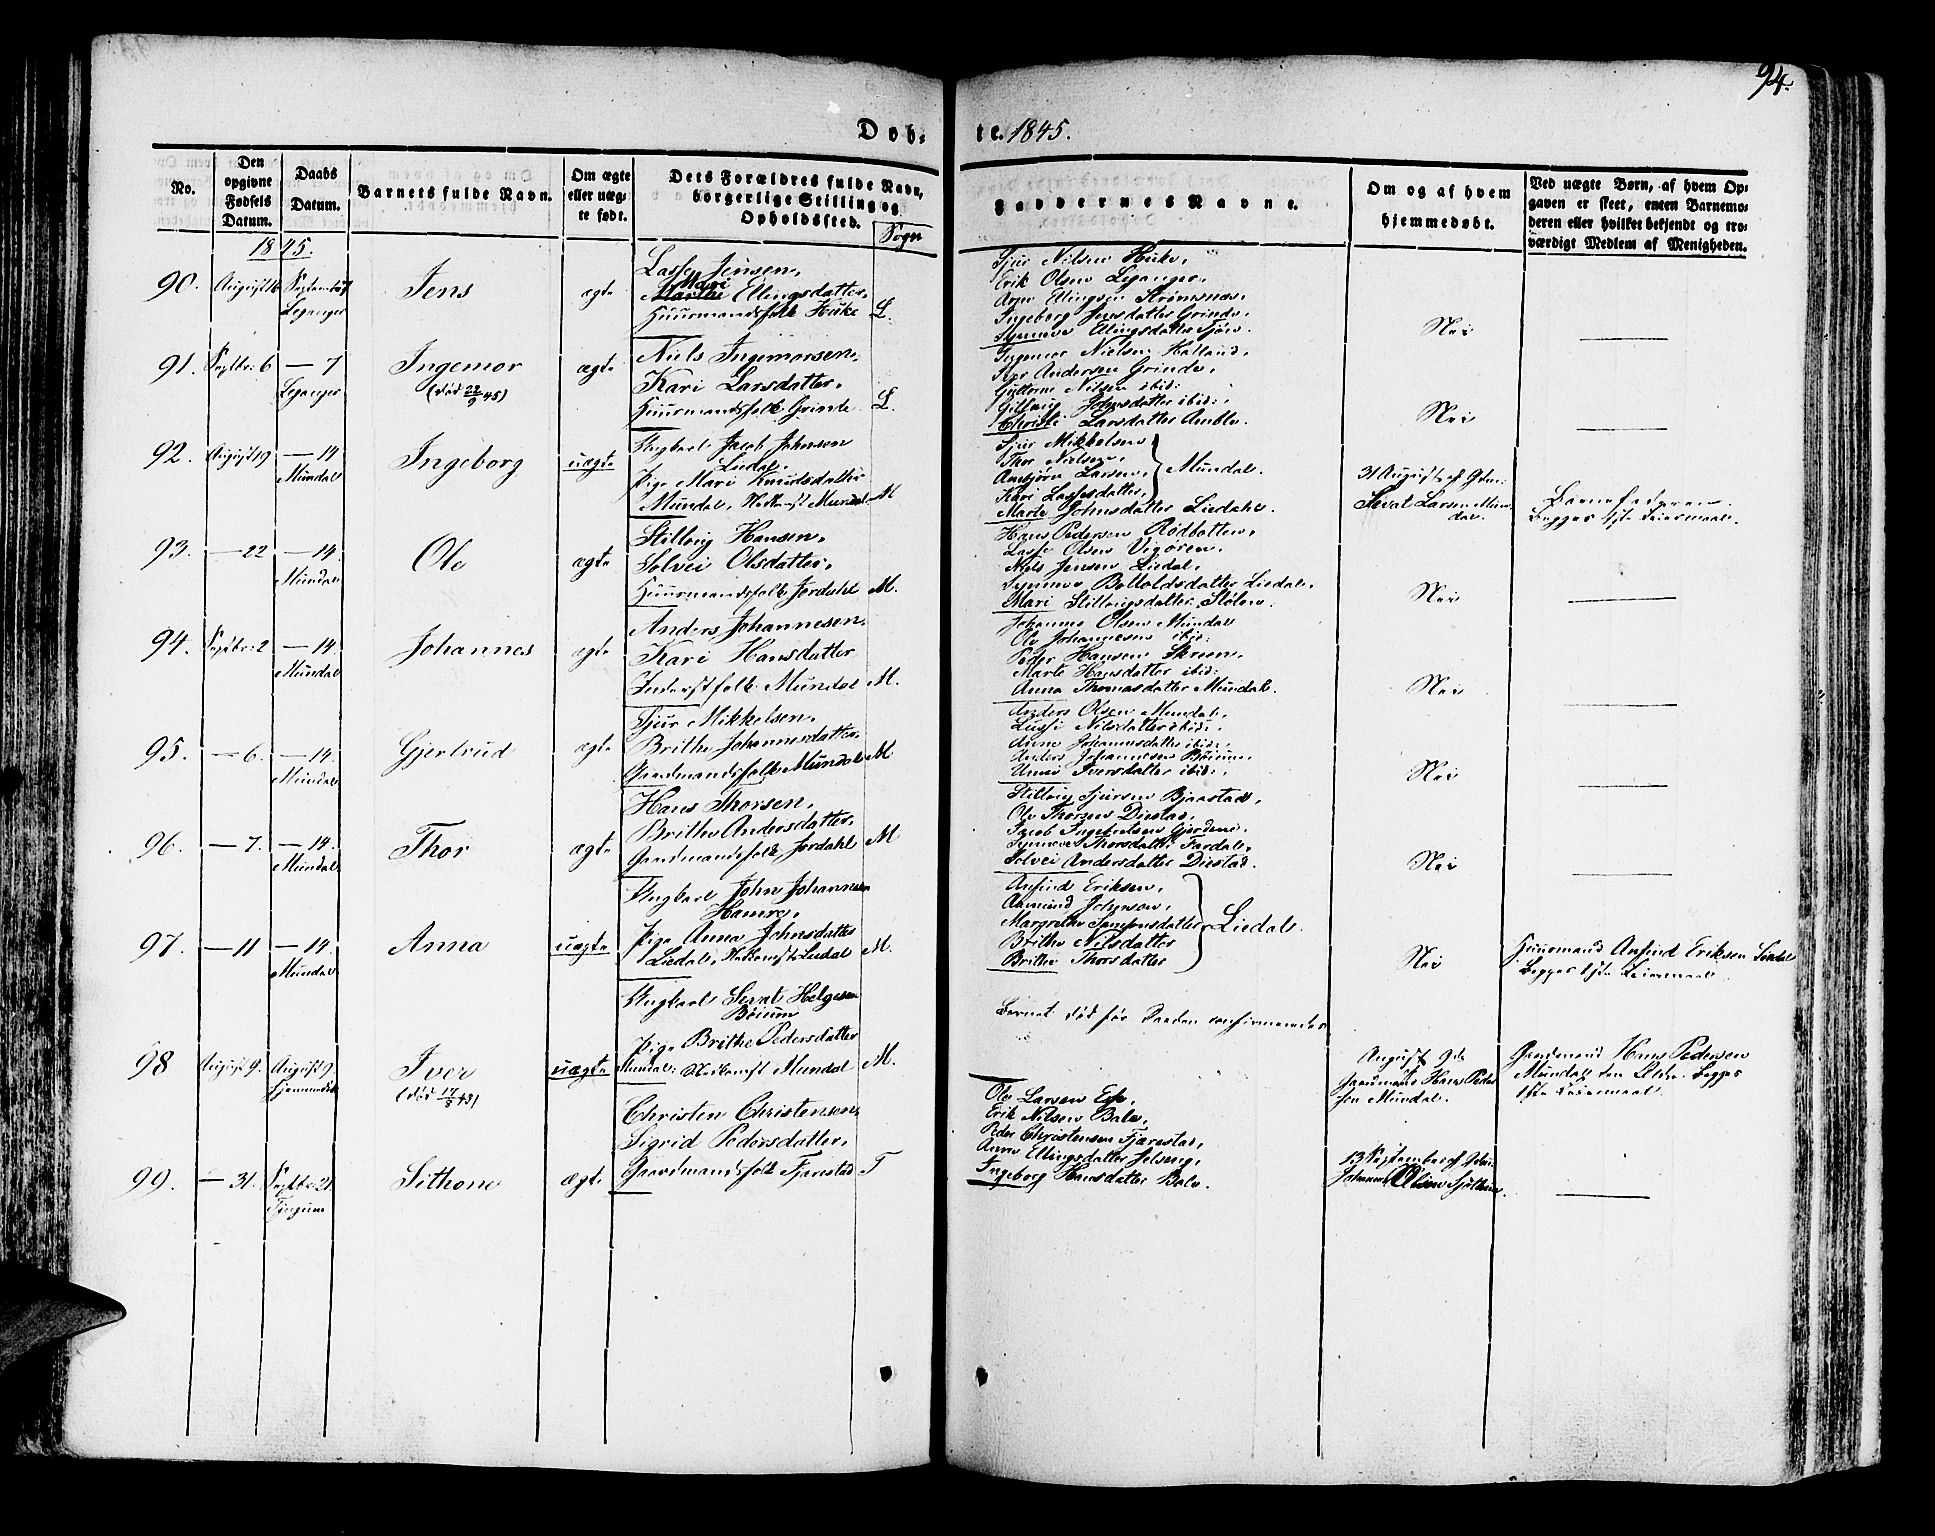 94.
Døb-
te. 1845.
No.
Den opgivne Fødsels Datum.
Daabs Datum.
Barnets fulde Navn.
Om ægte eller uægte født.
Dets Forældres fulde Navn, borgerlige Stilling og Opholdssted.
Sogn
Faddernes Navne.
Om og af hvem hjemmedøbt.
Ved uægte Børn, af hvem Opgaven er skeet, enten Barnemoderen eller hvilket bekjendt og troværdigt Medlem af Menigheden.
1845.
90.
August 16
September 7
Leganger
Jens
ægte
Lasse Jensen,
Mari
Marthe Ellingsdatter,
Huusmandsfolk Huke
L.
Sjur Nilsen Huke,
Erik Olsen Leganger,
Arne Ellingsen Strømsnæs,
Ingeborg Jensdatter Grinde,
Synneve Ellingsdatter
Nei
91.
Septbr: 6
— 7
Leganger
Ingemor
(død 22/9 45)
ægte
Niels Ingemorsen,
Kari Larsdatter,
Huusmandsfolk Grinde
L.
Ingemor Nielsen Hatland,
Iver Andersen Grinde,
Guttorm Nilsen ibid:
Gitlaug Johnsdatter ibid:,
Christi Larsdatter Amble.
Nei
92.
August 19
— 14
Mundal
Ingeborg
uægte
Ungkarl Jacob Johnsen
Liedal,
Pige Mari Knudsdatter
Mundal, Nedkomst Mundal
M
Sjur Mikkelsen,
Thor Nielsen,
Ansjørn Larsen,
Kari Lassesdatter,
Mundal.
Marte Johnsdatter Liedahl.
31 August af Gdm:
Sivat Larsen Mundal.
Barnefaderen.
Begges 1ste Leiermaal.
93.
— 22
— 14.
Mundal
Ole
ægte
Stilloug Hansen,
Solvei Olsdatter,
Huusmandsfolk Jordahl
M.
Hans Pedersen Rødbotten,
Lasse Olsen Vigøren,
Niels Jensen Liedal,
Synneve Bottolsdatter Liedal,
Mari Stillougsdatter Stølen.
Nei
94.
Septbr: 2
— 14.
Mundal
Johannes
ægte
Anders Johannesen,
Kari Hansdatter
Inderstfolk Mundal
M.
Johannes Olsen Mundal
Ole Johannesen ibid:
Peder Hansen Skreen,
Marte Hansdatter ibid:
Anna Thomasdatter Mundal.
Nei
95.
— 6.
— 14.
Mundal
Gjertrud
ægte
Sjur Mikkelsen,
Brithe Johannesdatter,
Gaardmandsfolk Mundal
M
Anders Olsen Mundal,
Lussi Nilsdatter ibid:,
Anne Johannesdatter ibid:,
Anders Johannesen Bøium,
Unni Iversdatter ibid:.
Nei
96.
— 7.
— 14.
Mundal
Thor
ægte
Hans Thorsen,
Brithe Andersdatter,
Gaardmandsfolk Jordahl
M
Stilloug Sjursen Bjaastad,
Ole Thorsen Distad,
Jacob Ingebretsen Gjerdene,
Synneve Thorsdatter Fardal,
Solvei Andersdatter Distad.
Nei
97.
— 11
— 14.
Mundal
Anna
uægte
Ungkarl John Johannesen
Hamre,
Pige Anna Johnsdatter
Liedal, Nedkomst Liedal
M.
Anfind Eriksen,
Aamund Johnsen,
Margrethe Samsonsdatter
Brithe Nilsdatter
Brithe Thorsdatter
Liedal.
Nei
Huusmand Anfind Eriksen Liedal
Begges 1ste Leiermaal.
98
August 9.
August 9.
Hjemmedøbt
Iver
(død 17/8 45)
uægte
Ungkarl Sevat Helgesen
Bøium
Pige Brithe Pedersdatter
Mundal: Nedkomst Mundal
M.
Barnet død før Daaben confirmeredes
August 9de
Gaardmand Hans Pedersen Mundal.
Gaardmand Hans Pedersen
Mundal den Eldre. Begges
1ste Leiermaal.
99.
— 31.
Septbr: 21
Tjugum
Sithone
ægte
Christen Christensen,
Sigrid Pedersdatter,
Gaardmandsfolk Fjærestad
T
Ole Larsen Ese,
Erik Nilsen Bale,
Peder Christensen Fjærestad,
Anne Ellingsdatter
Ingeborg Hansdatter Bale.
13 September af
Johannes Olsen